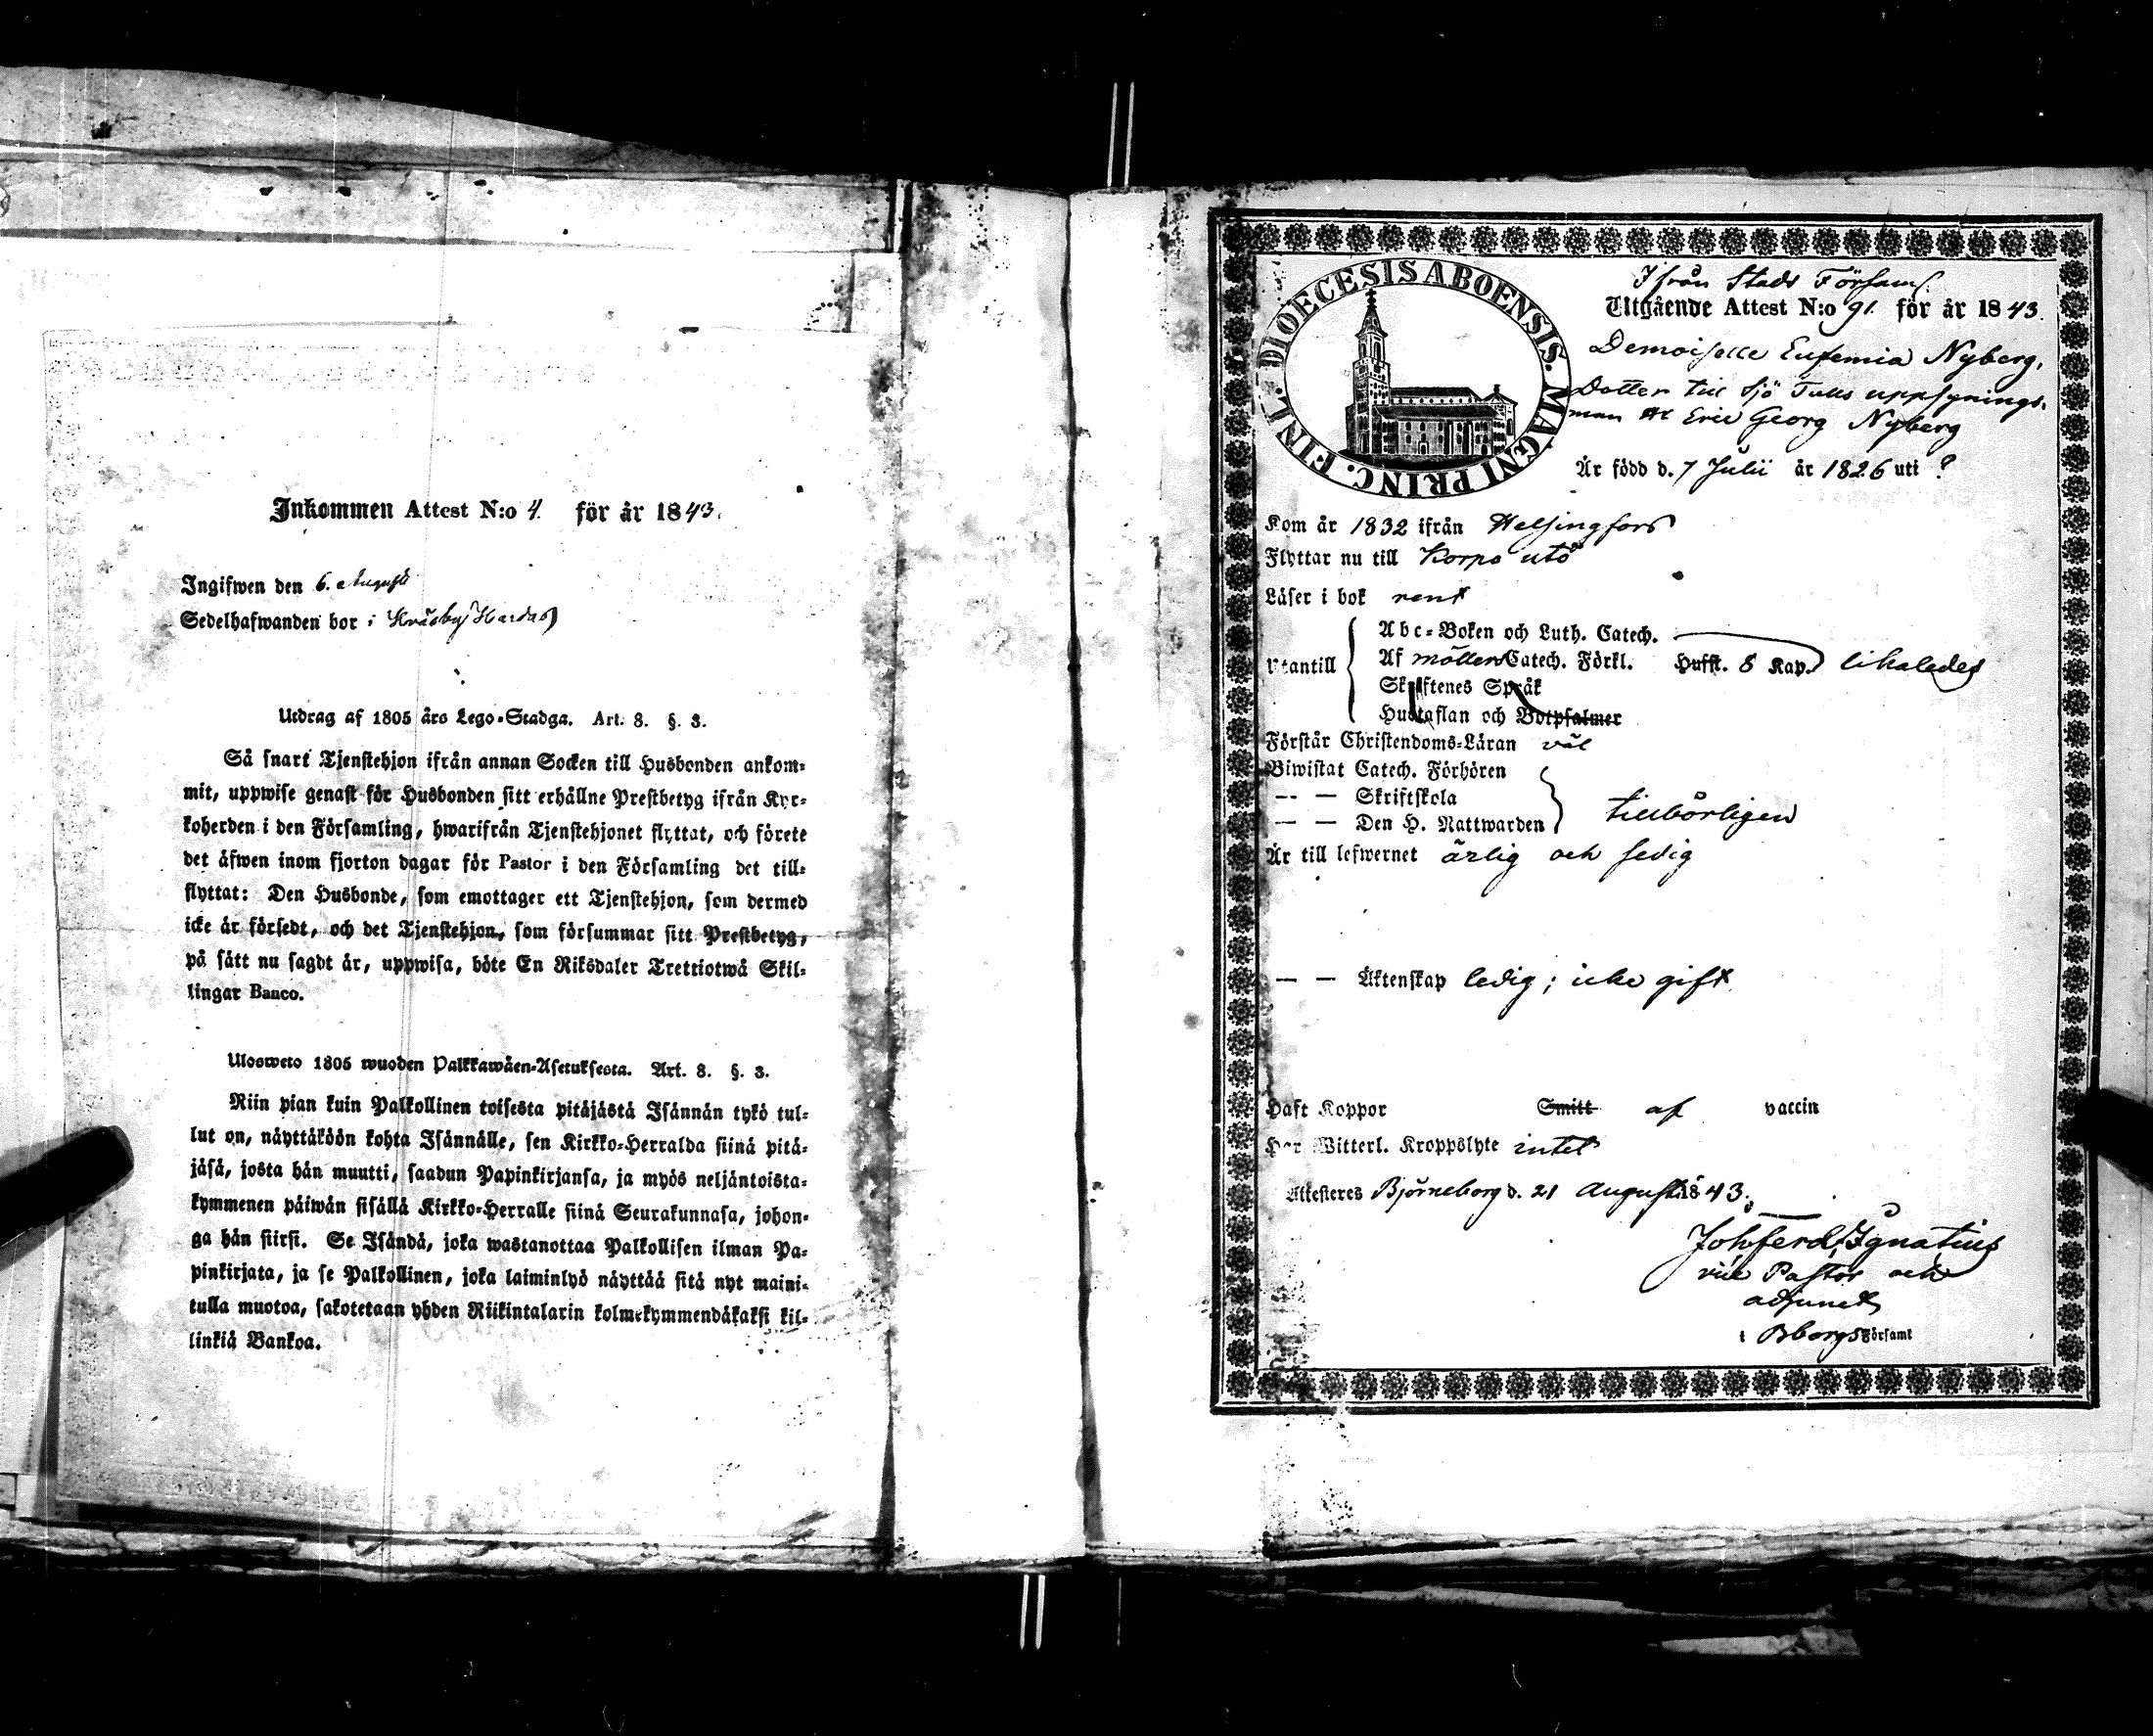 Inkommen Attest N:o 4. för år 1843.
Ingifwen den 6. Augusti
Sedelhafwanden bor i
Utdrag af 1805 års Lego-Stadga. Art. 8. §. 3.
Så snart Tjenstehjon ifrån annan Socken till Husbonden ankom-
mit, uppwise genast för Husbonden sitt erhållne Prestbetyg ifrån Kyr-
koherden i den Församling, hwarifrån Tjenstehjonet flyttat, och förete
det äfwen inom fjorton dagar för Pastor i den Församling det till-
flyttat: Den Husbonde, som emottager ett Tjenstehjon, som dermed
icke är försedt, och det Tjenstehjon, som försummar sitt Prestbetyg,
på sätt nu sagdt är, uppwisa, böte En Riksdaler Trettiotwå Skil-
lingar Banco.
Ulosweto 1805 wuoden Palkkawäen-Asetuksesta. Art. 8. §. 3.
Niin pian kuin Palkollinen toisesta pitäjästä Isännän tykö tul-
lut on, näyttäköön kohta Isännälle, sen Kirkko-Herralda siinä pitä-
jäsä, josta hän muutti, saadun Papinkirjansa, ja myös neljäntoista-
kymmenen päiwän sisällä Kirkko-Herralle siinä Seurakunnasa, johon-
ga hän siirsi. Se Isändä, joka wastanottaa Palkollisen ilman Pa-
pinkirjata, ja se Palkollinen, joka laiminlyö näyttää sitä nyt maini-
tulla muotoa, sakotetaan yhden Riikintalarin kolmekymmendäkaksi kil-
linkiä Bankoa.
DIOECESIS ABOENSIS. MAGNI PRINC. FINL.
Ifrån Stads Församl.
Utgående Attest N:o 91. för år 1843.
Demoiselle Eufemia Nyberg,
Dotter till Sjö Tulls uppsynings-
man Eric Georg Nyberg
Är född d. 7 Julii år 1826 uti ?
Kom år 1832 ifrån Helsingfors
Flyttar nu till Korpo utö
Läser i bok rent
Utantill
Abc-Boken och Luth. Catech.
Af möllers Catech. Förkl. Hufst. 8 Kap. likaledes
Skriftenes Språk
Hustaflan och Botpsalmer
Förstår Christendoms-Läran väl
Biwistat Catech. Förhören
-- — Skriftskola
— — Den H. Nattwarden tillbörligen
Är till lefwernet ärlig och sedig
— — Äktenskap ledig; icke gift
Haft Koppor Smitt af vaccin
Har Witterl. Kroppslyte intet
Attesteres Björneborg d. 21 Augusti 1843.
Joh. Ferd. Ignatius
vice Pastor och
adjunct
i Bborgs Församl